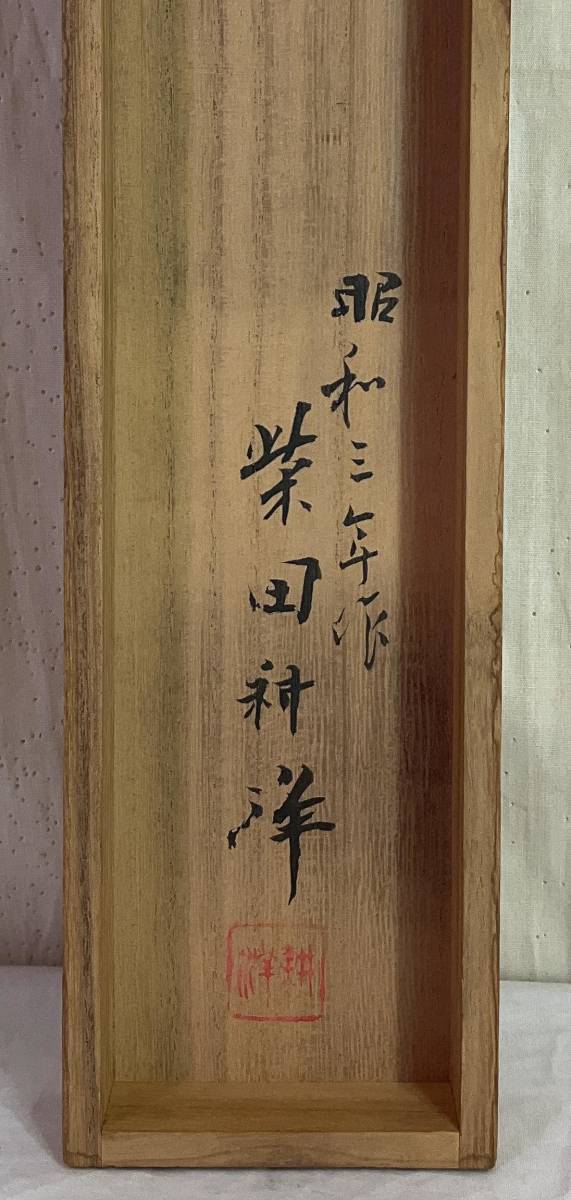 昭和三年作
柴田耕洋
耕洋